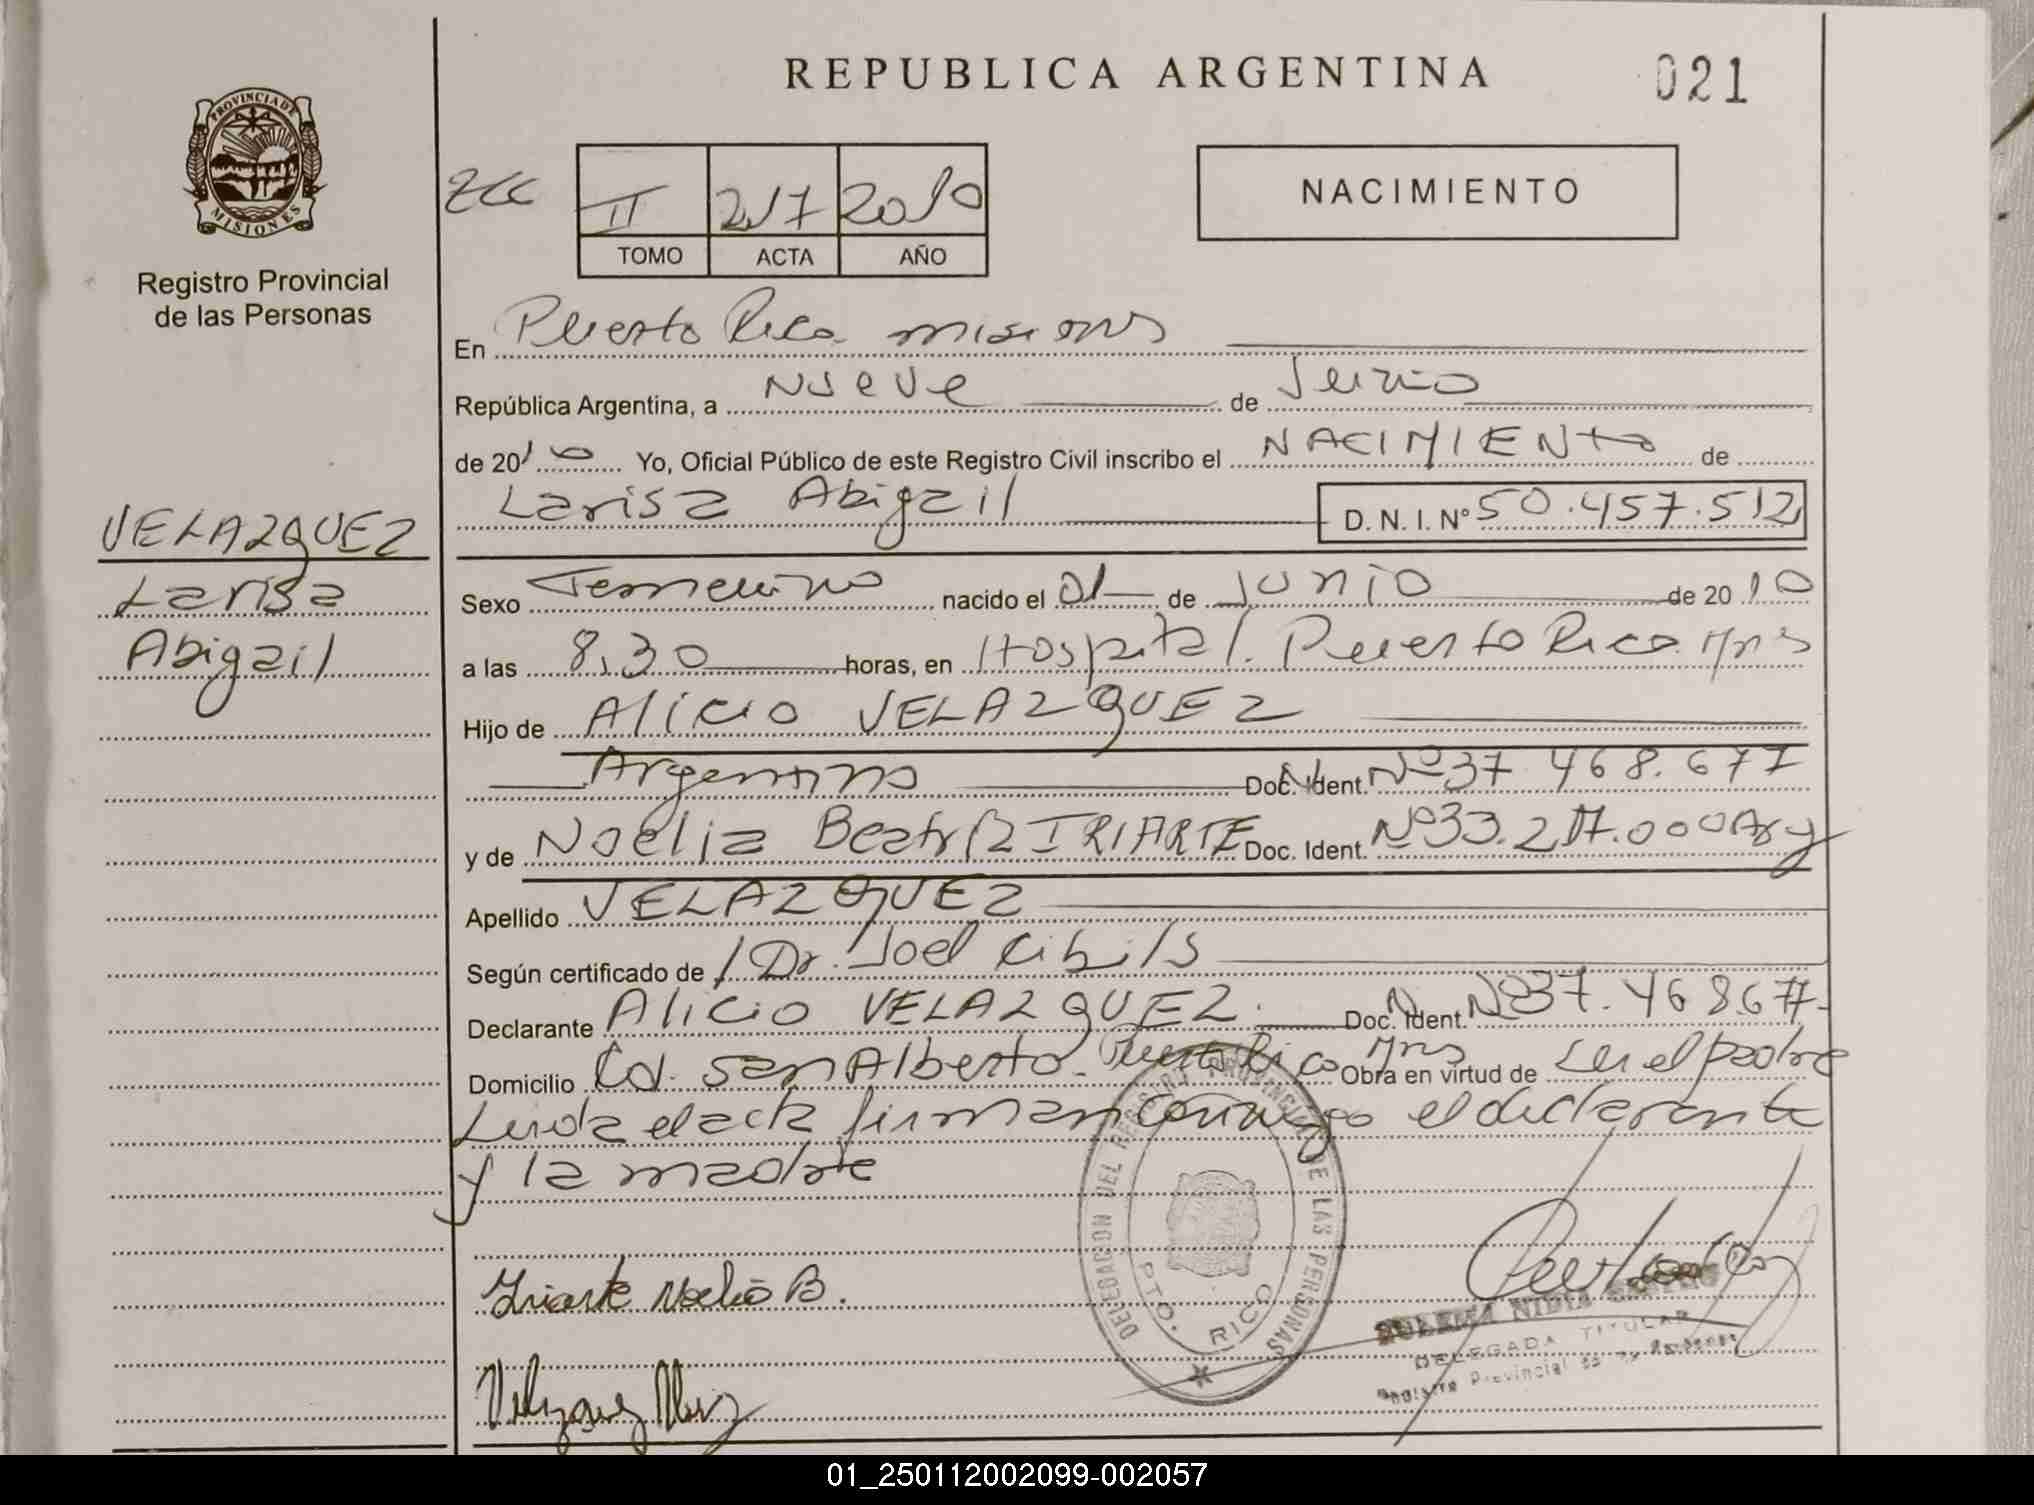 REPUBLICA ARGENTINA
021
PROVINCIA DE
MISIONES
Registro Provincial
de las Personas
II 217 2010
TOMO ACTA AÑO
NACIMIENTO
En Puerto Rico misiones
República Argentina, a Nueve de Junio
de 2010 Yo, Oficial Público de este Registro Civil inscribo el NACIMIENto de
Larisa Abigail D. N. I. Nº 50.457.512
VELAZQUEZ
Larisa
Abigail
Sexo Femenino nacido el 01 de Junio de 2010
a las 8,30 horas, en Hospital. Puerto Rico Mns
Hijo de Alicio VELAZQUEZ
Argentino Doc. Ident. Nº 37.468.677
y de Noelia Beatriz IRIARTE Doc. Ident. Nº 33.217.000 Arg
Apellido VELAZQUEZ
Según certificado de Dr. Joel Cibils
Declarante Alicio VELAZQUEZ. Doc. Ident. Nº 37.468677
Domicilio Cd. San Alberto. Puerto Rico Mns Obra en virtud de ser el padre
Leida el acta firman conmigo el declarante
y la madre
DELEGACION DEL REGISTRO PROVINCIAL DE LAS PERSONAS
PTO. RICO
Iriarte Noelia B.
DELEGADA TITULAR
Registro Provincial de las Personas
01_250112002099-002057